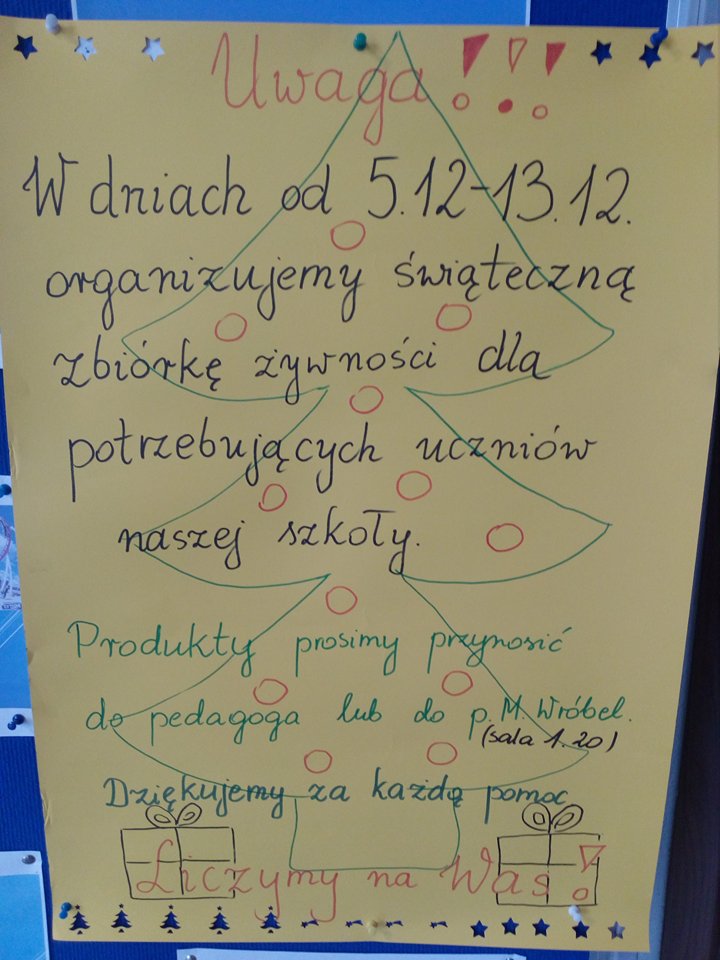 Uwaga!!!
W dniach od 5.12-13.12.
organizujemy świąteczną
zbiórkę żywności dla
potrzebujących uczniów
naszej szkoły.
Produkty prosimy przynosić
do pedagoga lub do p. M. Wróbel.
(sala 1.20)
Dziękujemy za każdą pomoc
Liczymy na Was!